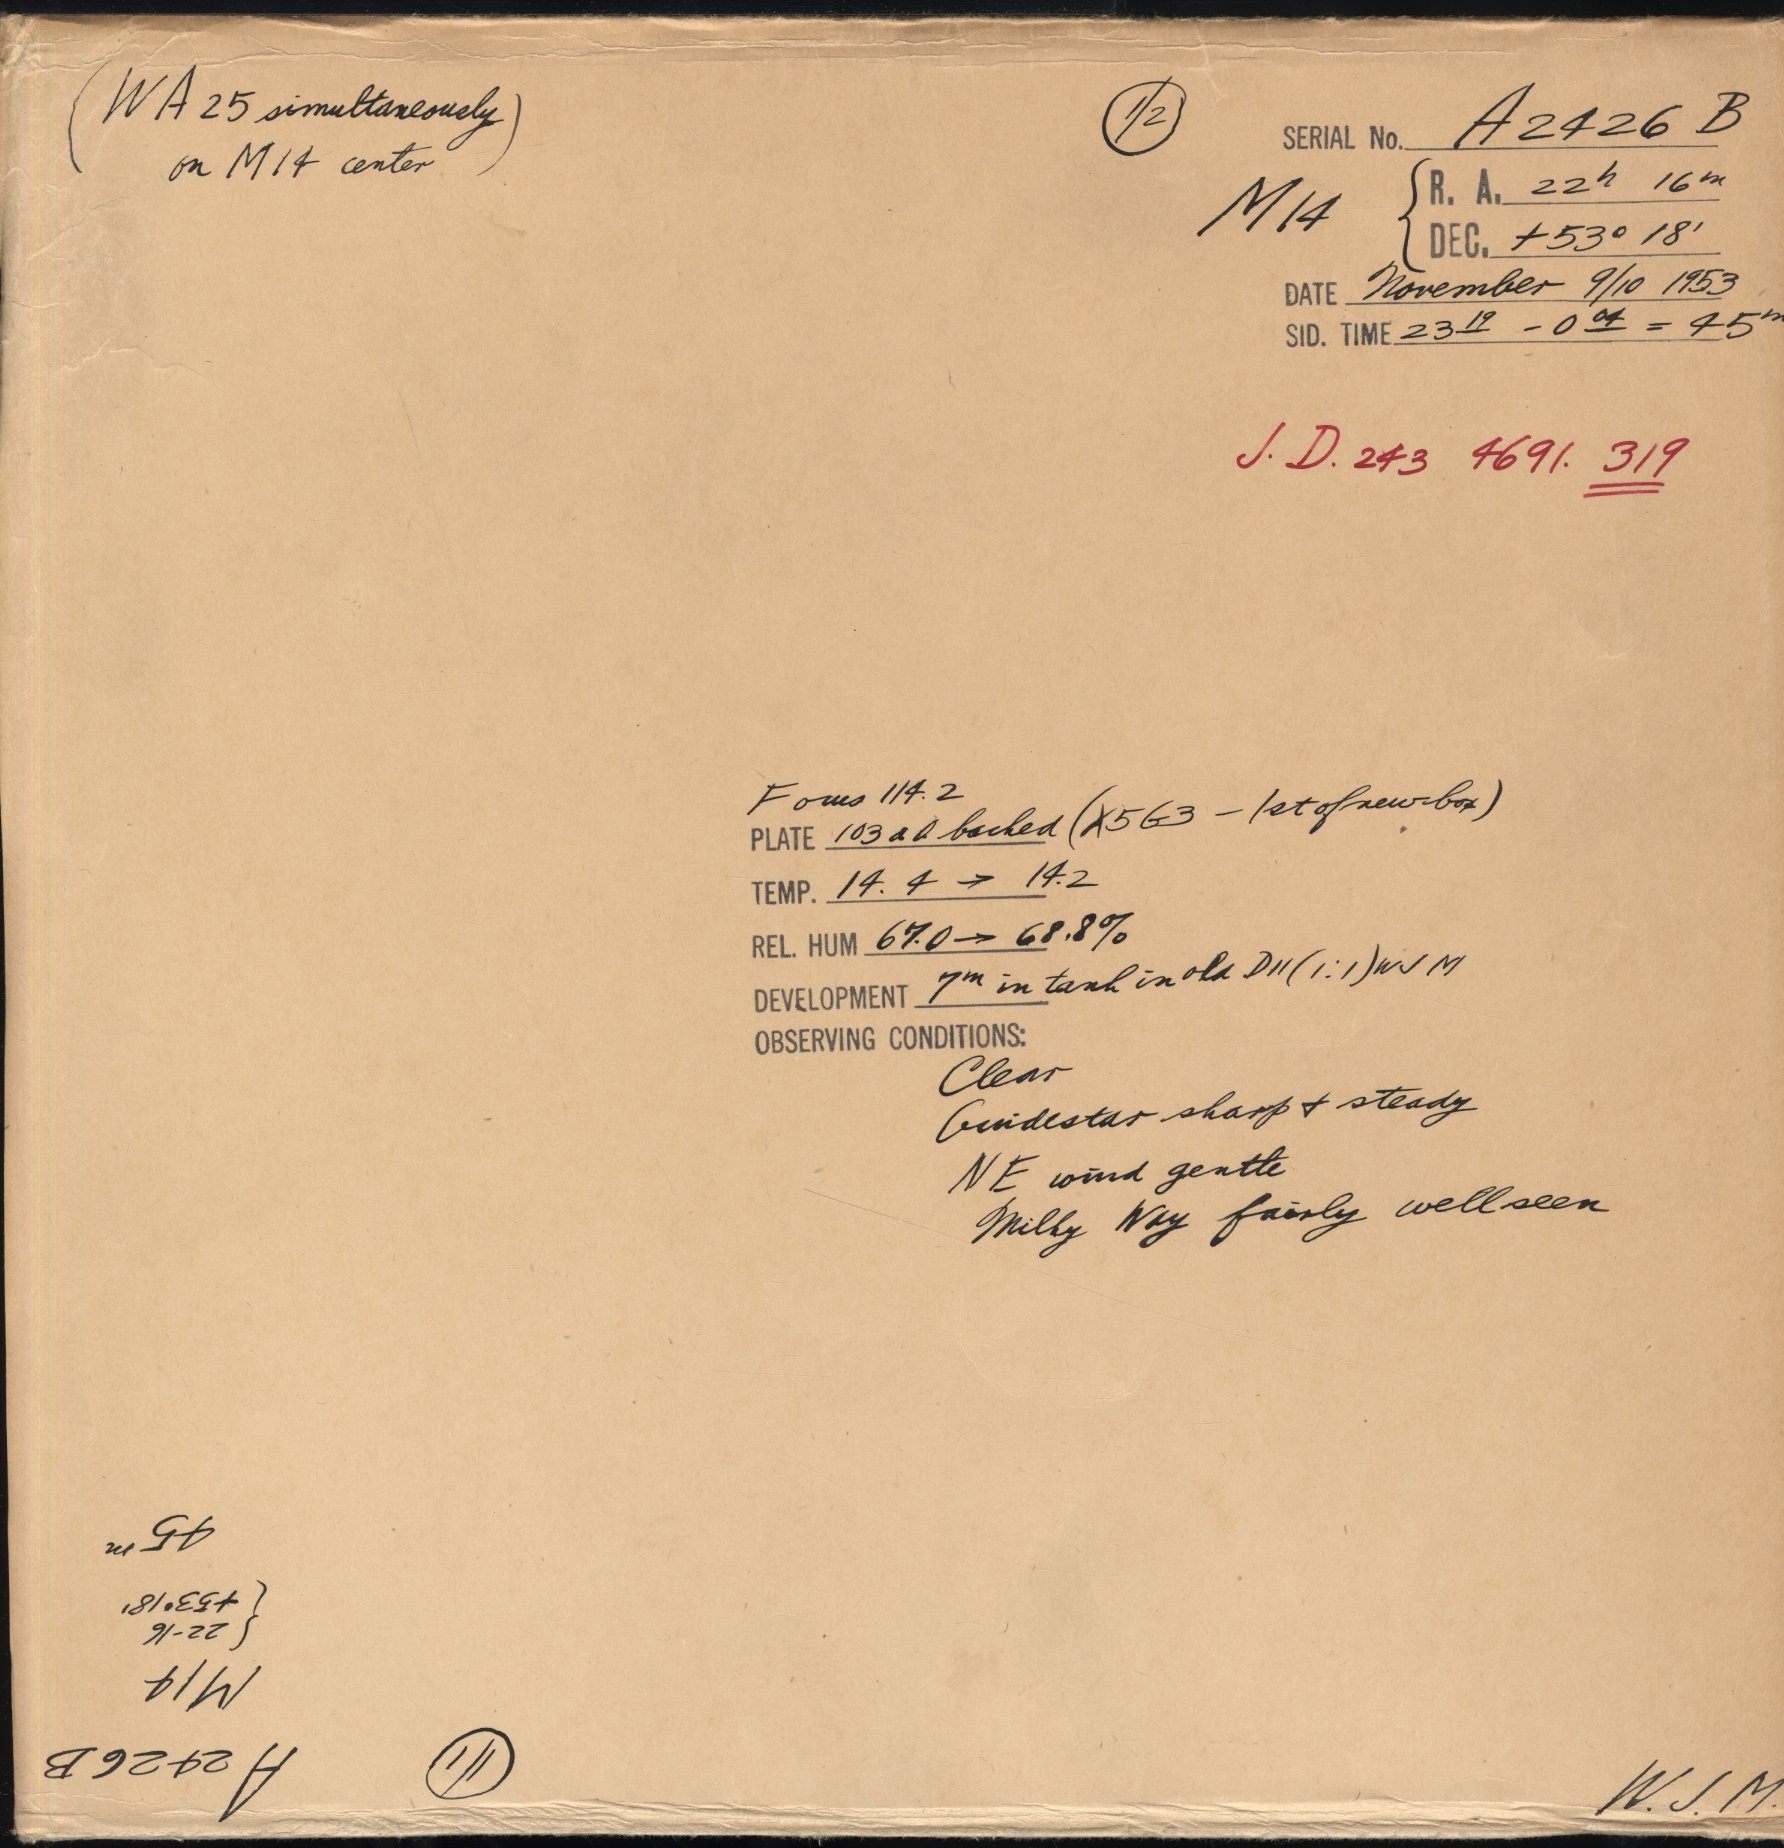 (WA 25 simultaneously
on M14 center)
1/2
SERIAL No. A2426 B
M14
R. A. 22h 16m
DEC. +53° 18'
DATE November 9/10 1953
SID. TIME 23 19 - 0 04 = 45m
J. D. 243 4691. 319
Focus 114.2
PLATE 103aO backed (X5G3 - 1st of new box)
TEMP. 14.4 → 14.2
REL. HUM 67.0 → 68.8%
DEVELOPMENT 7m in tank in old D11 (1:1) WJM
OBSERVING CONDITIONS:
Clear
Guidestar sharp + steady
NE wind gentle
Milky Way fairly well seen
W. J. M.
A2426B
M14
22-16
+53°18'
45m